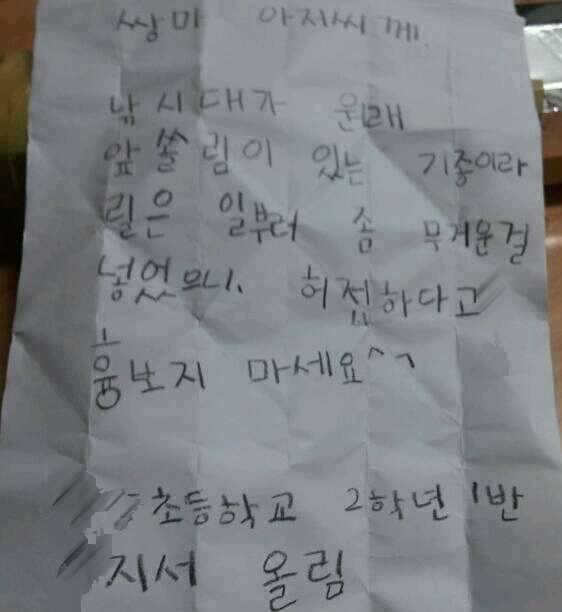 쌍마 아저씨께
낚시대가 원래
앞쏠림이 있는 기종이라
릴은 일부러 좀 무거운걸
넣었으니, 허접하다고
흉보지 마세요^^
초등학교 2학년 1반
지서 올림